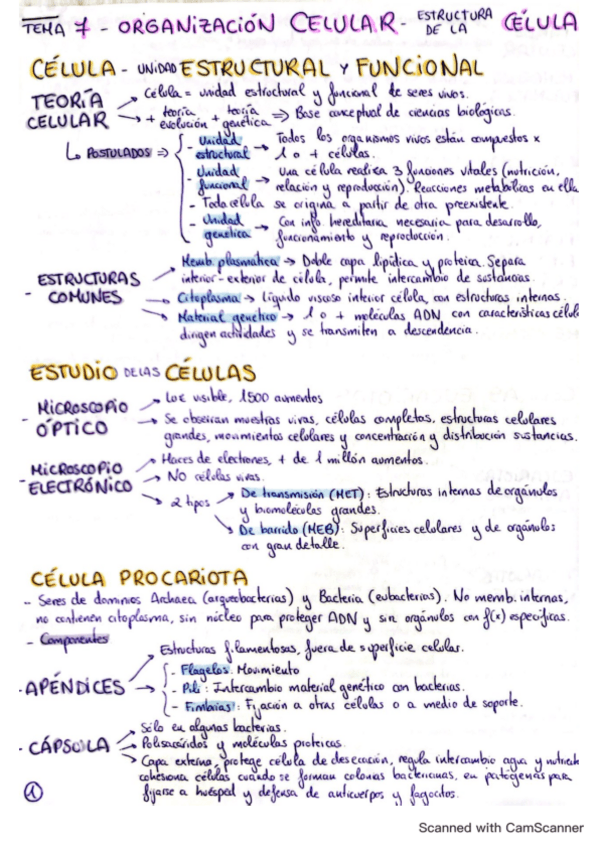 TEMA 7 - ORGANIZACIÓN CELULAR - ESTRUCTURA DE LA CÉLULA
CÉLULA - UNIDAD ESTRUCTURAL Y FUNCIONAL
TEORÍA CELULAR → Célula = unidad estructural y funcional de seres vivos.
→ + teoría evolución + teoría genética ⇒ Base conceptual de ciencias biológicas.
↳ POSTULADOS ⇒ - Unidad estructural → Todos los organismos vivos están compuestos x
1 o + células.
- Unidad funcional → Una célula realiza 3 funciones vitales (nutrición,
relación y reproducción). Reacciones metabólicas en ella
- Toda célula se origina a partir de otra preexistente.
- Unidad genética → Con info hereditaria necesaria para desarrollo,
funcionamiento y reproducción.
- ESTRUCTURAS COMUNES → Memb. plasmática → Doble capa lipídica y proteica. Separa
interior-exterior de célula, permite intercambio de sustancias.
→ Citoplasma → Líquido viscoso interior célula, con estructuras internas.
→ Material genético → 1 o + moléculas ADN con características célul
dirigen actividades y se transmiten a descendencia.
ESTUDIO DE LAS CÉLULAS
- MICROSCOPIO ÓPTICO → Luz visible, 1500 aumentos
→ Se observan muestras vivas, células completas, estructuras celulares
grandes, movimientos celulares y concentración y distribución sustancias.
- MICROSCOPIO ELECTRÓNICO → Haces de electrones, + de 1 millón aumentos.
→ NO células vivas.
→ 2 tipos → De transmisión (MET): Estructuras internas de orgánulos
y biomoléculas grandes.
→ De barrido (MEB): Superficies celulares y de orgánulos
con gran detalle.
CÉLULA PROCARIOTA
- Seres de dominios Archaea (arqueobacterias) y Bacteria (eubacterias). No memb. internas,
no contienen citoplasma, sin núcleo para proteger ADN y sin orgánulos con f(x) específicas.
- Componentes
- APÉNDICES → Estructuras filamentosas, fuera de superficie celular.
→ - Flagelos: Movimiento
- Pili: Intercambio material genético con bacterias.
- Fimbrias: Fijación a otras células o a medio de soporte.
- CÁPSULA → Sólo en algunas bacterias.
→ Polisacáridos y moléculas proteicas.
→ Capa externa, protege célula de desecación, regula intercambio agua y nutrient
cohesiona células cuando se forman colonias bacterianas, en patógenas para
fijarse a huésped y defensa de anticuerpos y fagocitos.
1
Scanned with CamScanner